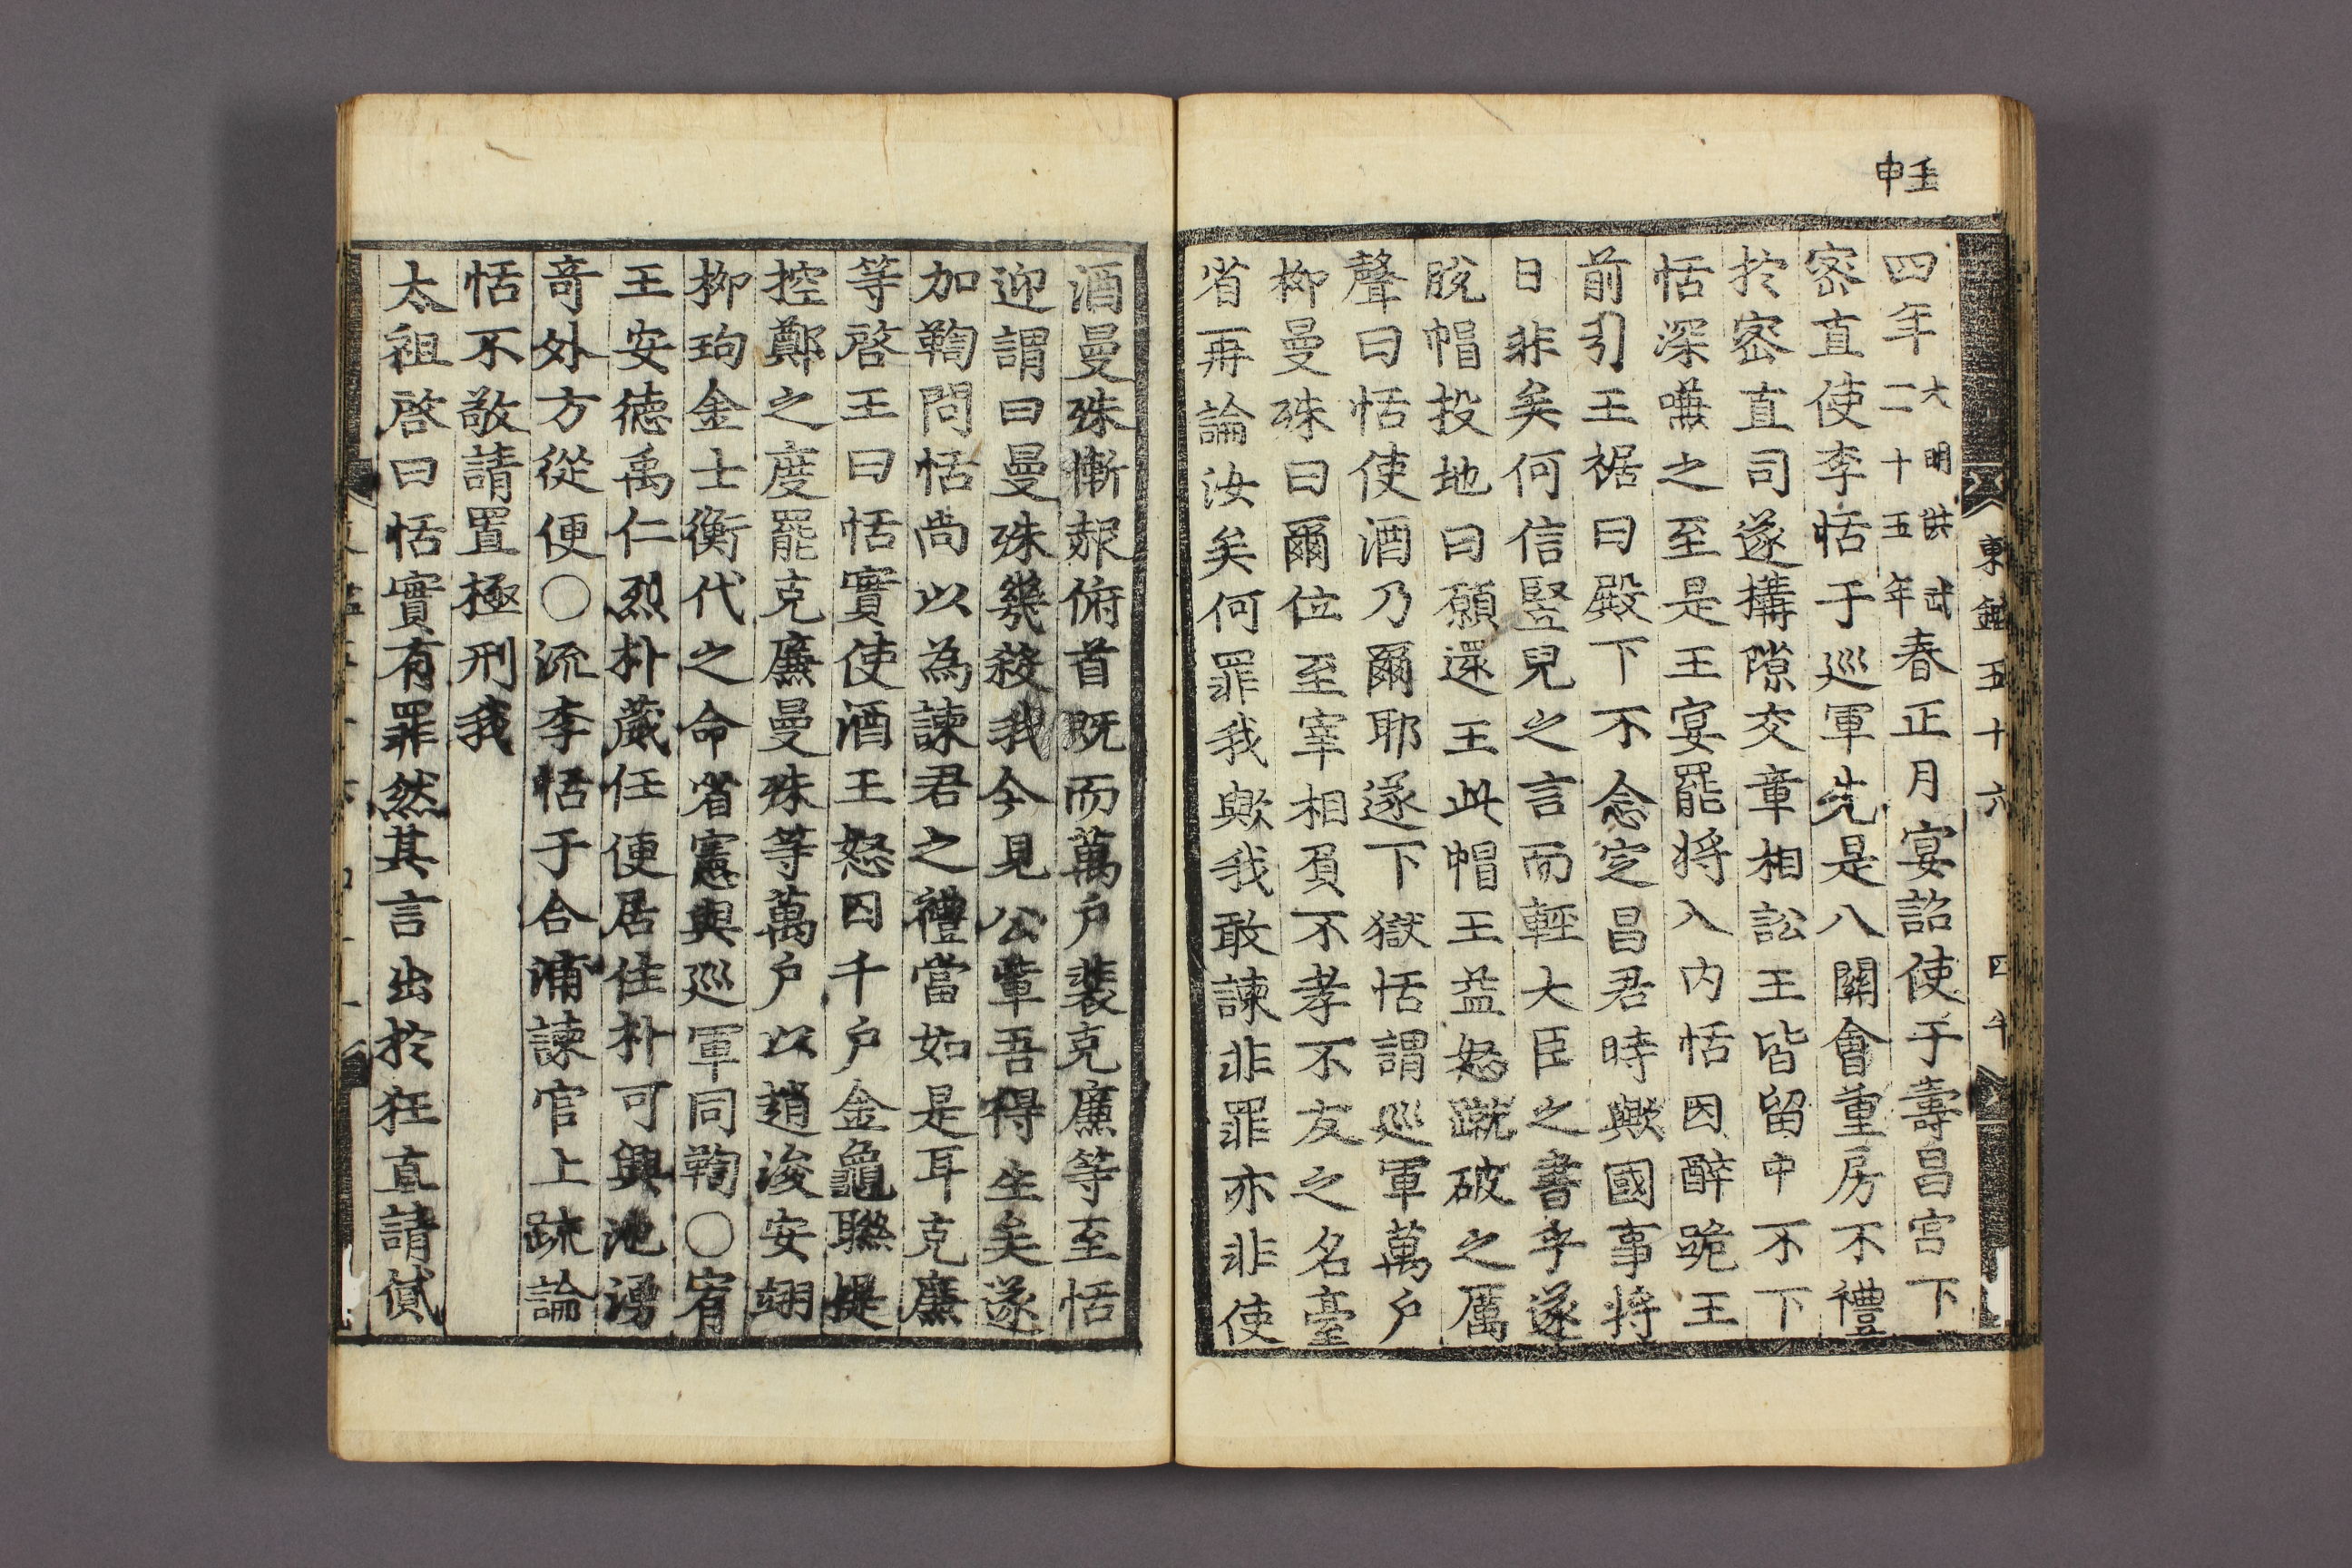 壬申
四年大明洪武二十五年春正月宴詔使于壽昌宮下
密直使李恬于巡軍先是八關會重房不禮
於密直司遂構隙交章相訟王皆留中不下
恬深嗛之至是王宴罷將入内恬因醉跪王
前引王裾曰殿下不念定昌君時歟國事將
日非矣何信竪兒之言而輕大臣之書乎遂
脫帽投地曰願還王此帽王益怒蹴破之厲
聲曰恬使酒乃爾耶遂下獄恬謂巡軍萬户
柳曼殊曰爾位至宰相負不孝不友之名臺
省再論汝矣何罪我歟我敢諫非罪亦非使
東鑑五十六 四十
酒曼殊慚赧俯首既而萬户裴克廉等至恬
迎謂曰曼殊幾殺我今見公輩吾得生矣遂
加鞫問恬尚以為諫君之禮當如是耳克廉
等啓王曰恬實使酒王怒囚千户金龜聯提
控鄭之度罷克廉曼殊等萬户以趙浚安翊
柳珣金士衡代之命省憲與巡軍同鞫〇宥
王安德禹仁烈朴葳任便居住朴可興池湧
奇外方從便〇流李恬于合浦諫官上疏論
恬不敬請置極刑我
太祖啓曰恬實有罪然其言出於狂直請貸